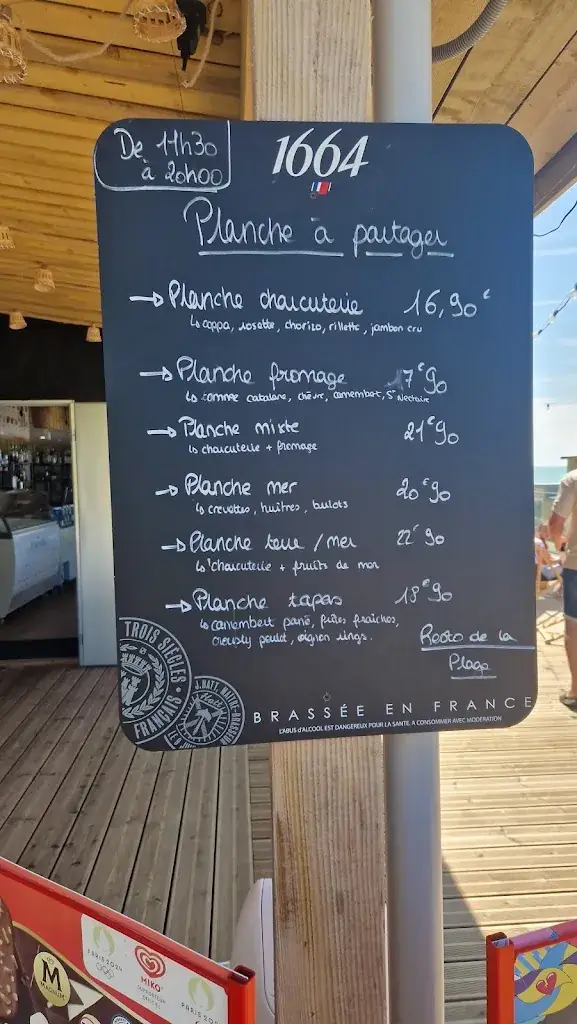 De 11h30
à 20h00
1664
Planche à partager
→ Planche charcuterie 16,90€
↳ coppa, rosette, chorizo, rillette, jambon cru
→ Planche fromage 17€90
↳ tomme catalane, chèvre, camembert, St Nectaire
→ Planche mixte 21€90
↳ charcuterie + fromage
→ Planche mer 20€90
↳ crevettes, huîtres, bulots
→ Planche terre / mer 22€90
↳ charcuterie + fruits de mer
→ Planche tapas 18€90
↳ camembert pané, frites fraîches,
crousty poulet, oignon rings.
Resto de la
Plage
TROIS SIÈCLES
FRANÇAIS
J. HATT, MAITRE-BRASSEUR
BRASSÉE EN FRANCE
L'ABUS D'ALCOOL EST DANGEREUX POUR LA SANTÉ. A CONSOMMER AVEC MODERATION
M
MAGNUM
PARIS 2024
MIKO
SUPPORTEUR
OFFICIEL
PARIS 2024